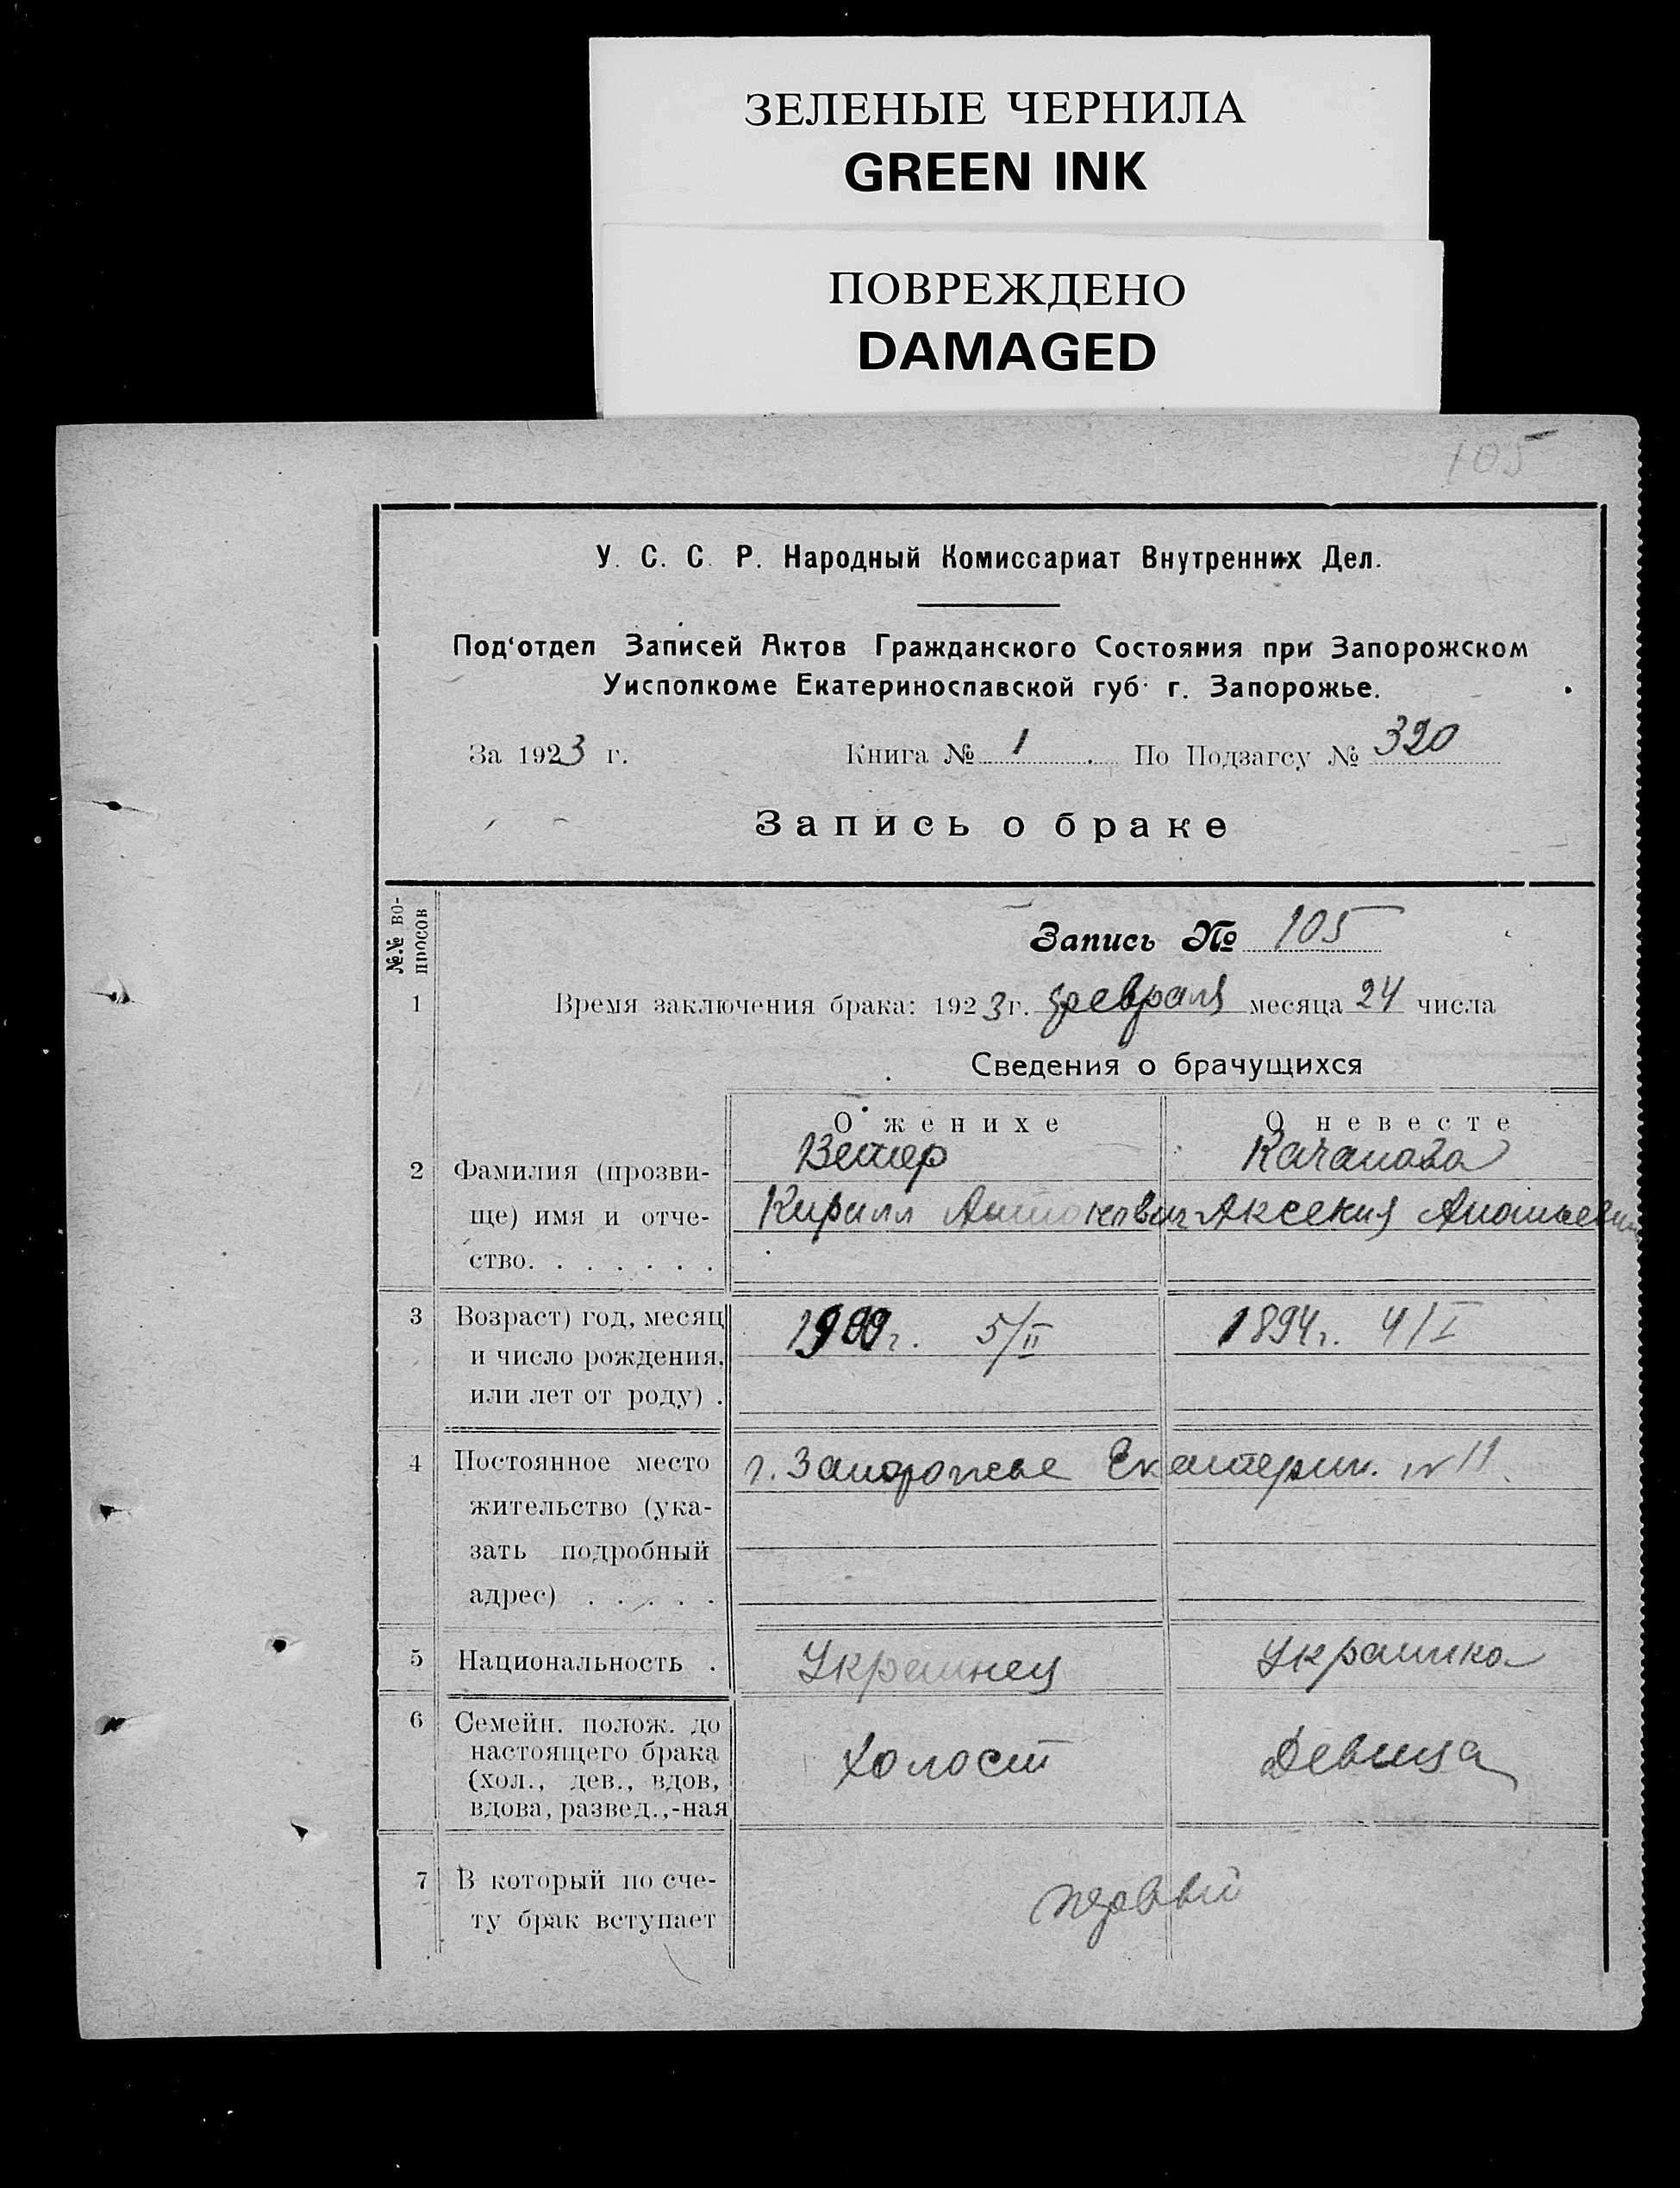 ЗЕЛЕНЫЕ ЧЕРНИЛА
GREEN INK
ПОВРЕЖДЕНО
DAMAGED
105
У. С. С. Р. Народный Комиссариат Внутренних Дел.
Под‘отдел Записей Актов Гражданского Состояния при Запорожском
Уисполкоме Екатеринославской губ. г. Запорожье.
За 1923 г. Книга № 1 По Подзагсу № 320
Запись о браке
№.№ во-
просов
Запись № 105
1 Время заключения брака: 1923 г. февраля месяца 24 числа
Сведения о брачущихся
О женихе О невесте
2 Фамилия (прозви-
ще) имя и отче-
ство. . . . . . .
Кирилл Аксения
3 Возраст) год, месяц
и число рождения,
или лет от роду) .
1900 г. 5/II 1894 г. 4/I
4 Постоянное место
жительство (ука-
зать подробный
адрес) . . . . .
г. Запорожье Екатерин. № 11
5 Национальность . Украинец Украинка
6 Семейн. полож. до
настоящего брака
(хол., дев., вдов,
вдова, развед.,-ная
Холост Девица
7 В который по сче-
ту брак вступает
первый